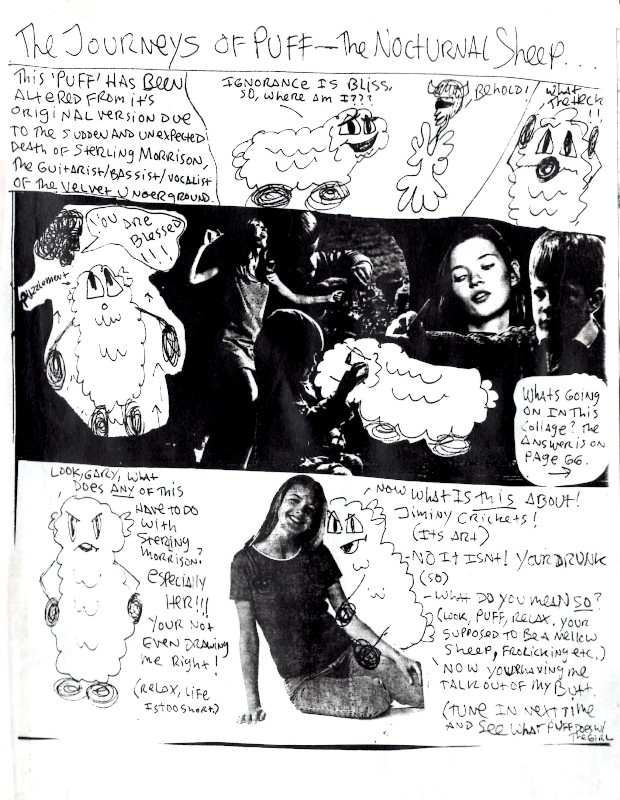 The Journeys of PUFF—The Nocturnal Sheep....
This 'PUFF' HAS BEEN
ALTERED FROM it's
original version due
to the sudden and unexpected
death of Sterling Morrison,
the Guitarist/bassist/vocalist
of the Velvet Underground.
IGNORANCE IS BLISS,
SO, where am I???
Behold!
What
The Heck
!!
You are
Blessed
!!!
Puzzlement
Whats going
on in this
collage? The
Answer is on
Page 66.
Look, Gary, what
does ANY of this
have to do
with
Sterling
Morrison?
especially
HER!!!
Your not
even drawing
me right!
(Relax, life
is too short.)
Now what is this about!
Jiminy Crickets!
(Its ART)
-No it isnt! Your drunk
(So)
-What do you mean SO?
(Look, Puff, relax. your
supposed to be a mellow
sheep, frolicking etc.)
Now your having me
talk out of my Butt.
(Tune in next time
and see what Puff does w/
the girl